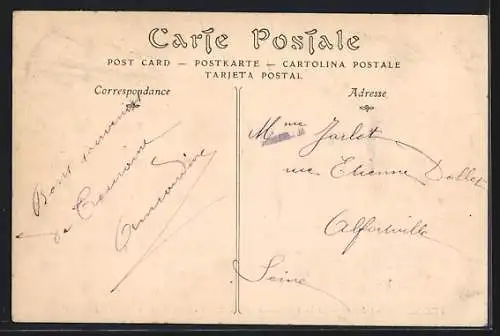 Carte Postale
POST CARD — POSTKARTE — CARTOLINA POSTALE
TARJETA POSTAL
Correspondance
Adresse
Bons souvenirs
de Touraine
Mme Jarlot
rue Etienne Dollet
Alfortville
Seine